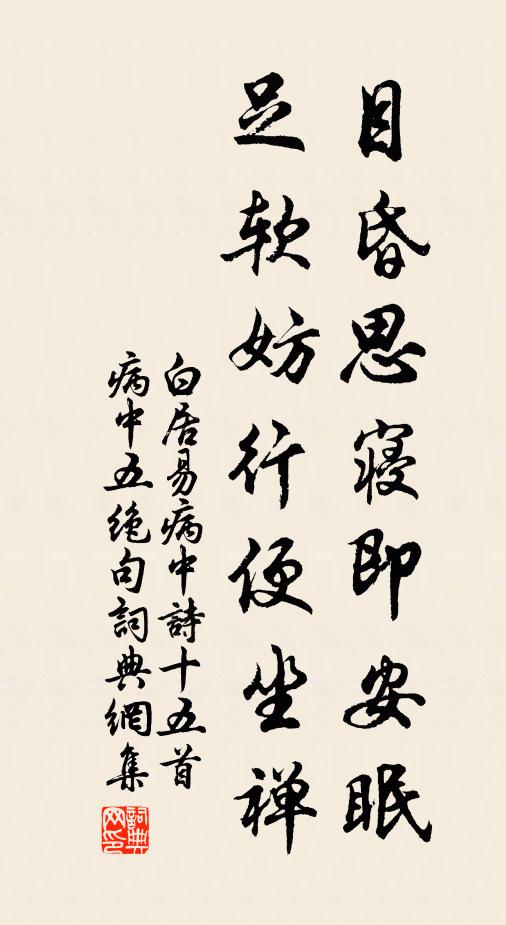 目昏思寢即安眠
足軟妨行便坐禅
白居易病中詩十五首
病中五绝句詞典網集
詞典網印